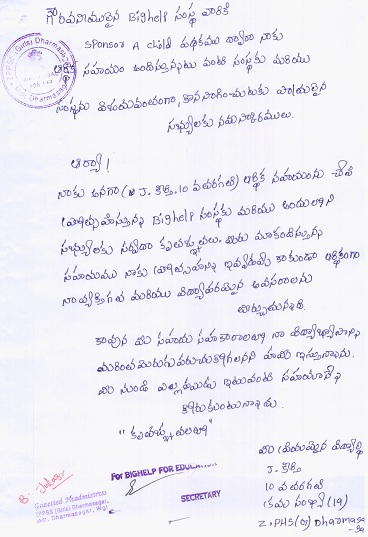 గౌరవనీయులైన Bighelp సంస్థ వారికి
Sponsor A child పథకము ద్వారా నాకు
ఆర్థిక సహాయం అందిస్తున్నటు వంటి సంస్థకు మరియు
సంస్థను
సభ్యులకు నమస్కారములు.
ఆర్యా!
నాకు అనగా (J. కీర్తి. 10 వ తరగతి) ఆర్థిక సహాయంను చేసి
ప్రోత్సహిస్తున్న Bighelp సంస్థకు మరియు అందులోని
సభ్యులకు సర్వదా కృతజ్ఞతలు. మీరు మాకందిస్తున్న
సహాయము నాకు ప్రోత్సాహాన్ని ఇవ్వడమే కాకుండా ఆర్థికంగా
నా వ్యక్తిగత మరియు విద్యాపరమైన అవసరాలను
తీర్చుతున్నది.
కావున మీ సహాయ సహకారాలతో నా విద్యాభ్యాసాన్ని
మరింత మెరుగు పరుచుకోగలనని హామీ ఇస్తున్నాను.
మీ నుండి ఎల్లప్పుడు ఇటువంటి సహాయాన్ని
కోరుకుంటున్నాను.
"కృతజ్ఞతలతో"
మీ ప్రియమైన విద్యార్థి
J. కీర్తి
10 వ తరగతి
క్రమ సంఖ్య (19)
Z.PHS(G) Dharmasa
For BIGHELP FOR EDUCATION
SECRETARY
Gazetted Headmistress
ZPPSS (Girls) Dharmasagar,
Mdl: Dharmasagar, Wgl